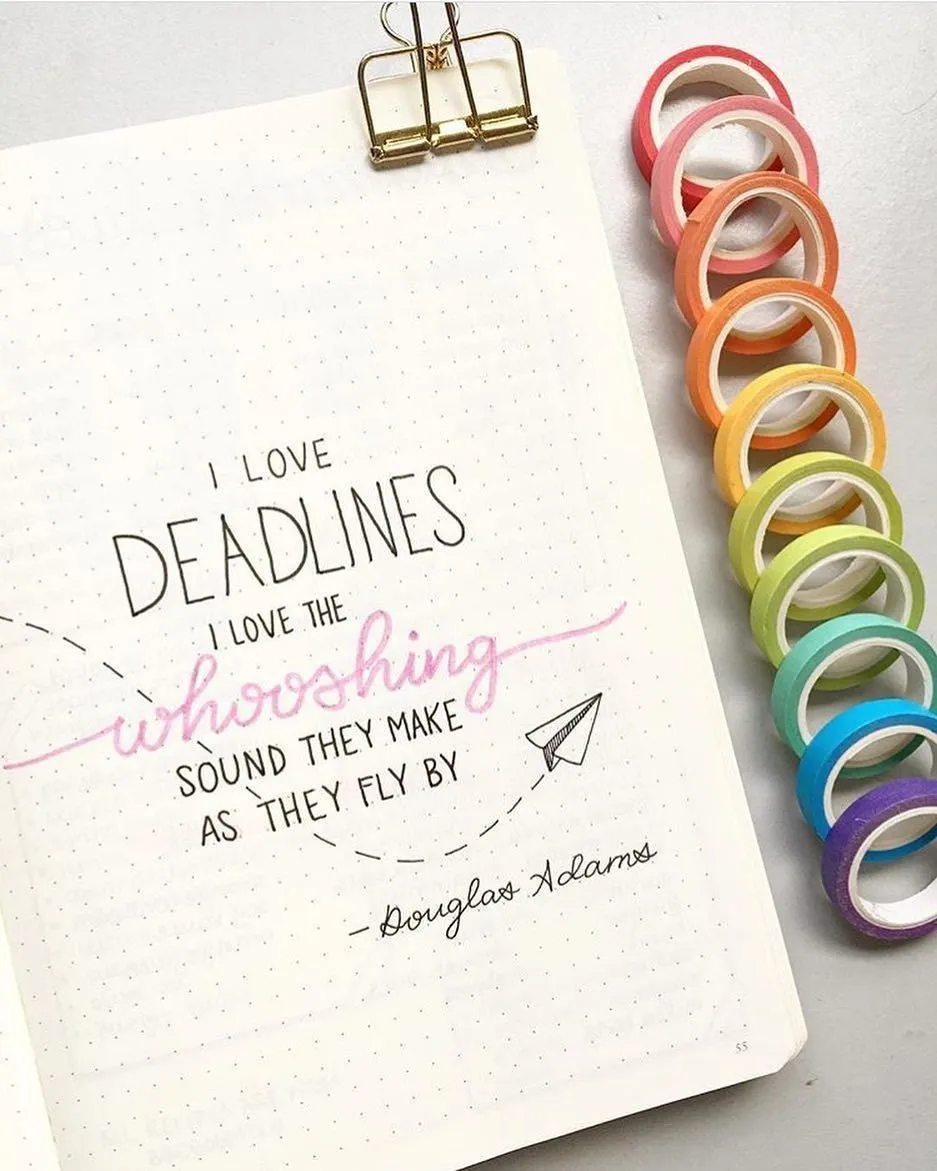 I LOVE
DEADLINES
I LOVE THE
whooshing
SOUND THEY MAKE
AS THEY FLY BY
- Douglas Adams
55